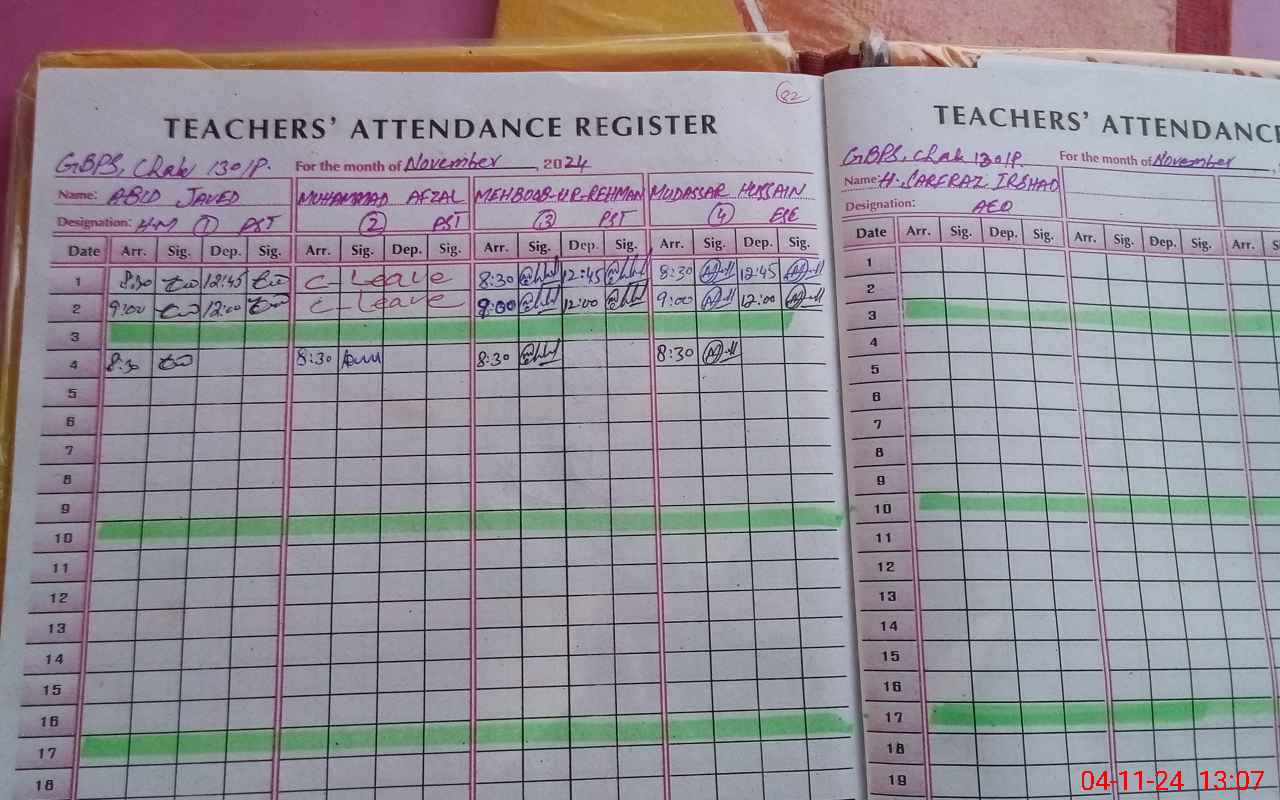 82
TEACHERS' ATTENDANCE REGISTER
GBPS, Chak 130/P. For the month of November 2024
Name: ABID JAVED MUHAMMAD AFZAL MEHBOOB-UR-REHMAN MUDASSAR HUSSAIN
Designation: H.M ① PST ② PST ③ PST ④ ESE
Date Arr. Sig. Dep. Sig. Arr. Sig. Dep. Sig. Arr. Sig. Dep. Sig. Arr. Sig. Dep. Sig.
1 8:30 12:45 C-Leave 8:30 12:45 8:30 12:45
2 9:00 12:00 C-Leave 9:00 12:00 9:00 12:00
3
4 8:30 8:30 8:30 8:30
5
6
7
8
9
10
11
12
13
14
15
16
17
18
TEACHERS' ATTENDANC
GBPS, Chak 130/P. For the month of November
Name: H. SARFRAZ IRSHAD
Designation: AEO
Date Arr. Sig. Dep. Sig. Arr. Sig. Dep. Sig. Arr. S
1
2
3
4
5
6
7
8
9
10
11
12
13
14
15
16
17
18
19
04-11-24 13:07